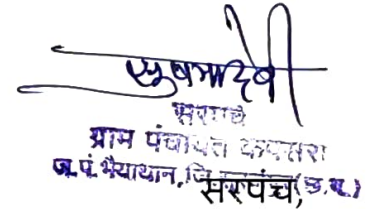 सुषमा देवी
सरपंच
ग्राम पंचायत
ज.पं. भैयाथान, (छ.ग.)
सरपंच,